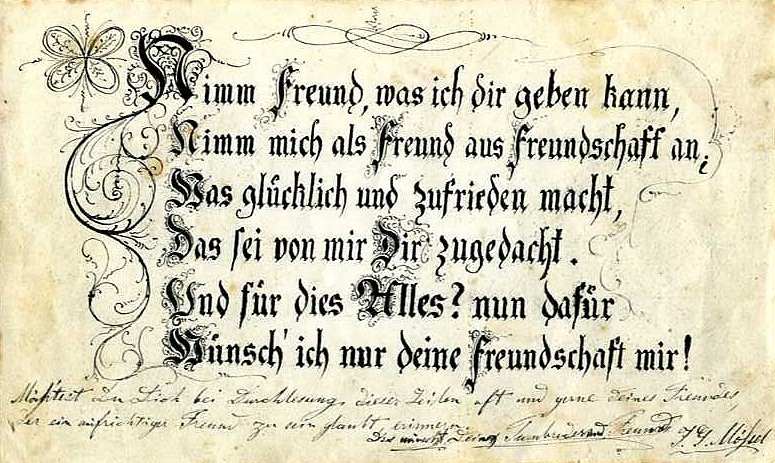 Nimm Freund, was ich dir geben kann,
Nimm mich als Freund aus Freundschaft an;
Was glücklich und zufrieden macht,
Das sei von mir Dir zugedacht.
Und für dies Alles? nun dafür
Wünsch' ich nur deine Freundschaft mir!
Möchtest Du Dich bei Durchlesung dieser Zeilen oft und gerne deines Freundes,
der ein aufrichtiger Freund zu sein glaubt, erinnern.
Dies wünscht Deiner und Freund J. G.